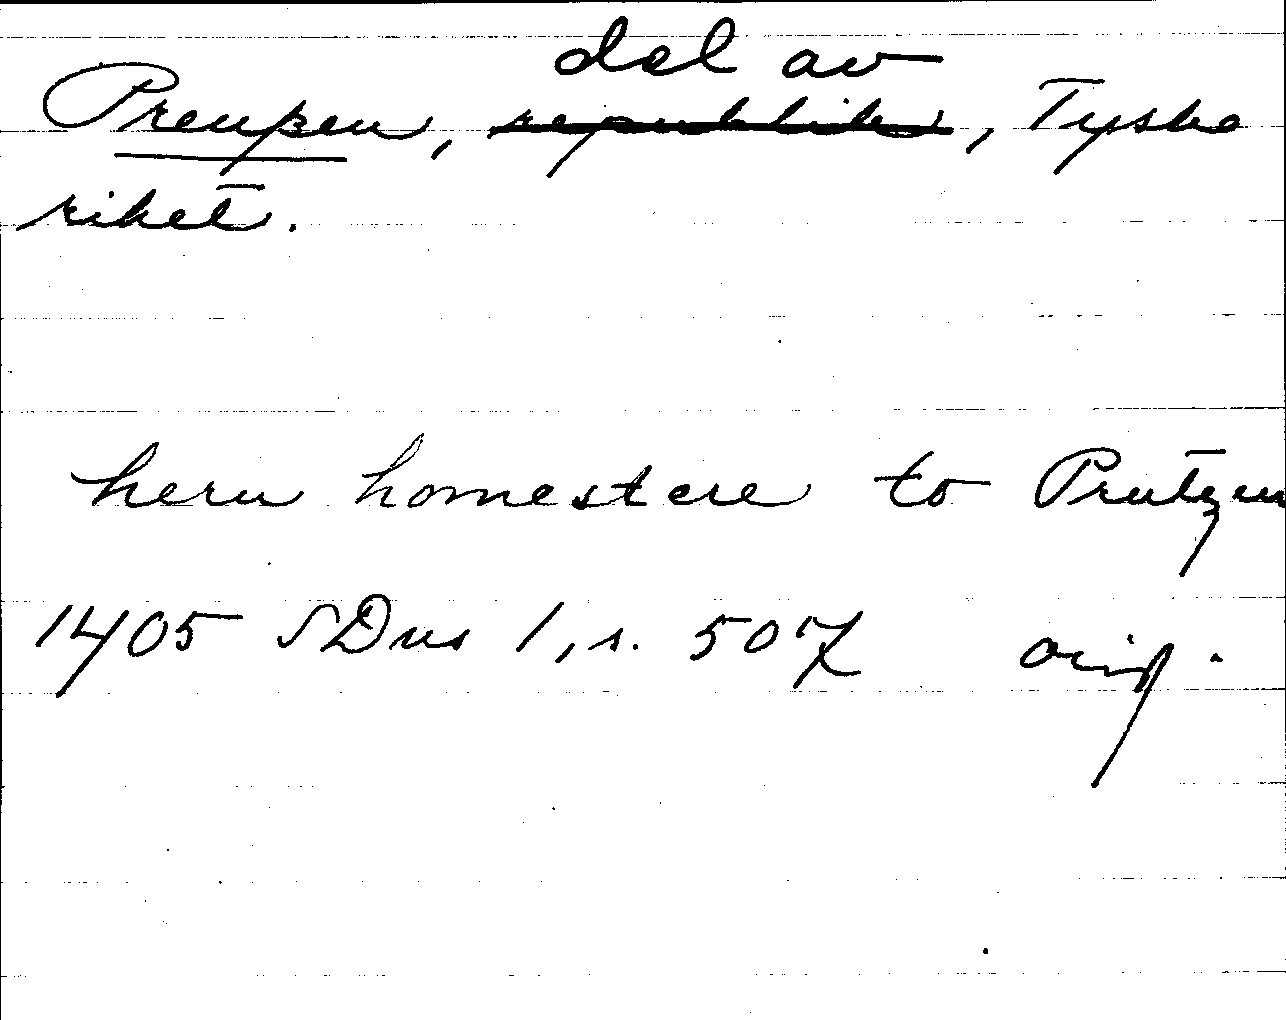 del av
Preußen, republik, Tyska
riket.
hern homestere to Prutzen
1405 SDns 1, s. 507 orig.